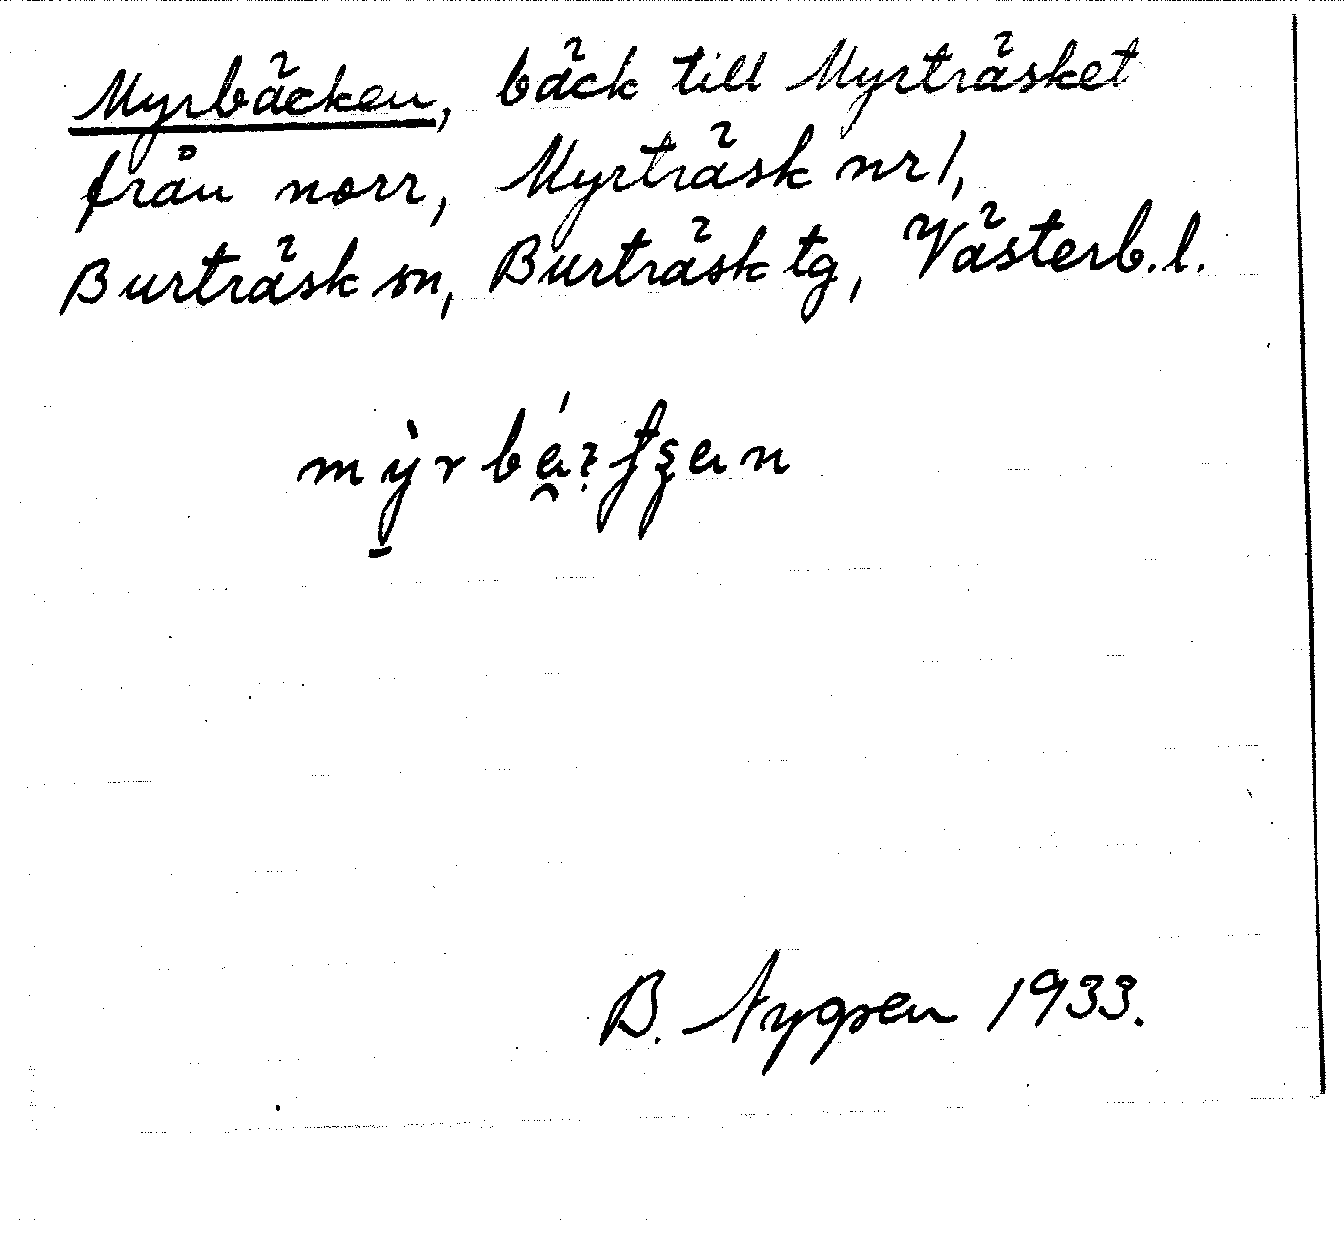 Myrbäcken, bäck till Myrträsket
från norr, Myrträsk nr 1,
Burträsk sn, Burträsk tg, Västerb.l.
B. Nygren 1933.